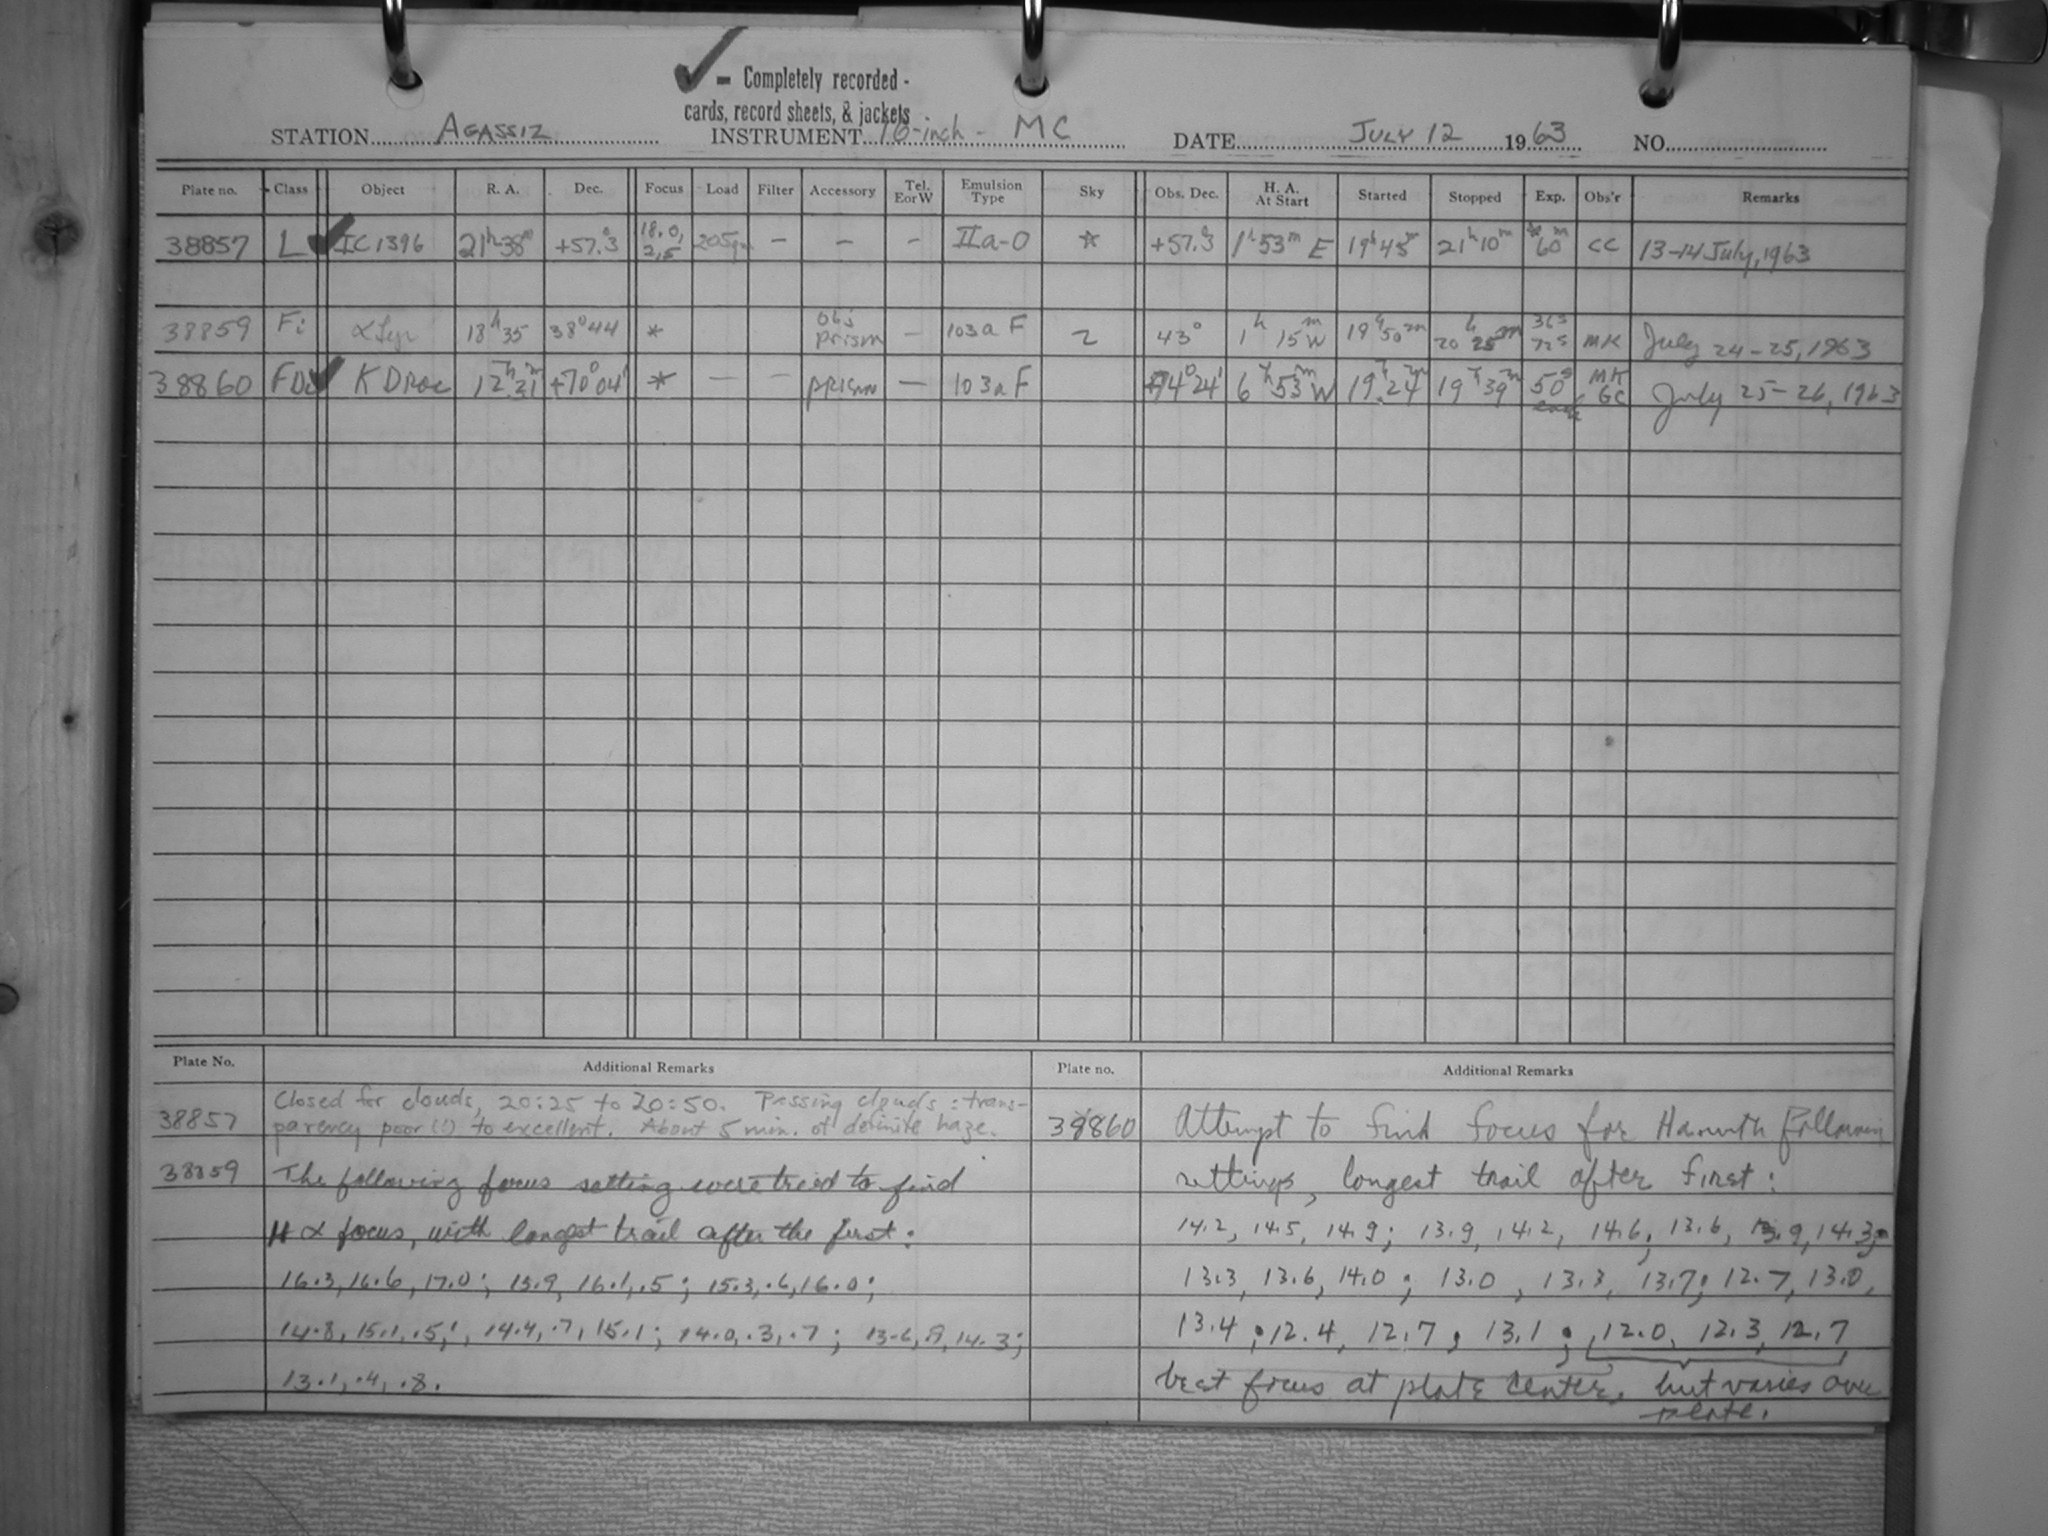 ✓ - Completely recorded -
cards, record sheets, & jackets
STATION AGASSIZ INSTRUMENT 16-inch - MC DATE JULY 12 1963 NO.
Plate no. Class Object R. A. Dec. Focus Load Filter Accessory Tel. E or W Emulsion Type Sky Obs. Dec. H. A. At Start Started Stopped Exp. Obs'r Remarks
38857 L ✓ IC 1396 21h 38m +57.°3 18.0, 2.5 205gm - - - IIa-O * +57.°3 1h 53m E 19h 45m 21h 10m * 60m CC 13-14 July, 1963
38859 Fi α Lyr 18h 35 38° 44 * obj prism - 103a F 2 43° 1h 15m W 19h 50m 20h 25m 36s 72s MK July 24-25, 1963
38860 ✓ K Drac 12h 31m +70° 04' * - - prism - 103a F +74° 24' 6h 53m W 19h 24m 19h 39m 50s each MK GC July 25-26, 1963
Plate No. Additional Remarks Plate no. Additional Remarks
38857 Closed for clouds, 20:25 to 20:50. Passing clouds: trans-
parency poor (!) to excellent. About 5 min. of definite haze.
38859 The following focus setting were tried to find
H α focus, with longest trail after the first:
16.3, 16.6, 17.0; 15.9, 16.1, .5; 15.3, .6, 16.0;
14.8, 15.1, .5; 14.4, .7, 15.1; 14.0, .3, .7; 13.6, .9, 14.3;
13.1, .4, .8.
38860 Attempt to find focus for Hα with following
settings, longest trail after first:
14.2, 14.5, 14.9; 13.9, 14.2, 14.6; 13.6, 13.9, 14.3;
13.3, 13.6, 14.0; 13.0, 13.3, 13.7; 12.7, 13.0,
13.4; 12.4, 12.7, 13.1; 12.0, 12.3, 12.7
best focus at plate center, but varies over
plate.